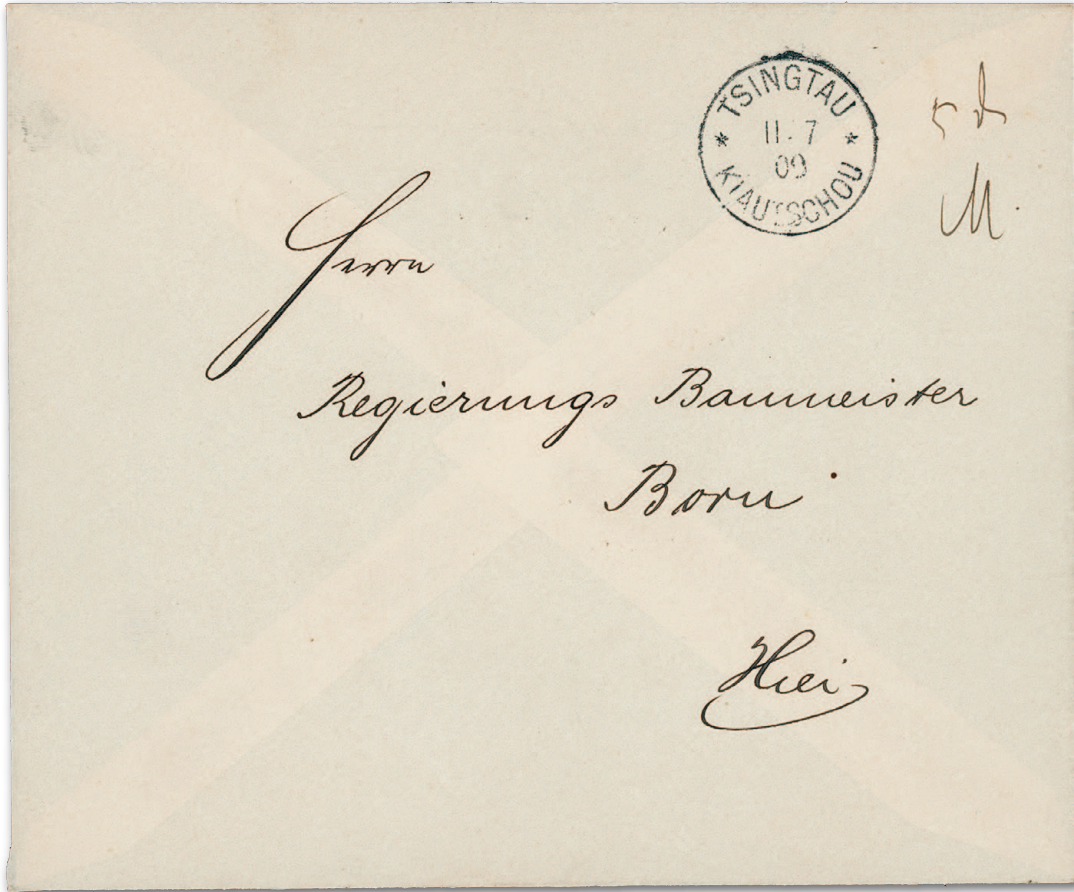 * TSINGTAU *
11. 7
09
KIAUTSCHOU
M.
Herrn
Regierungs Baumeister
Born
Hier